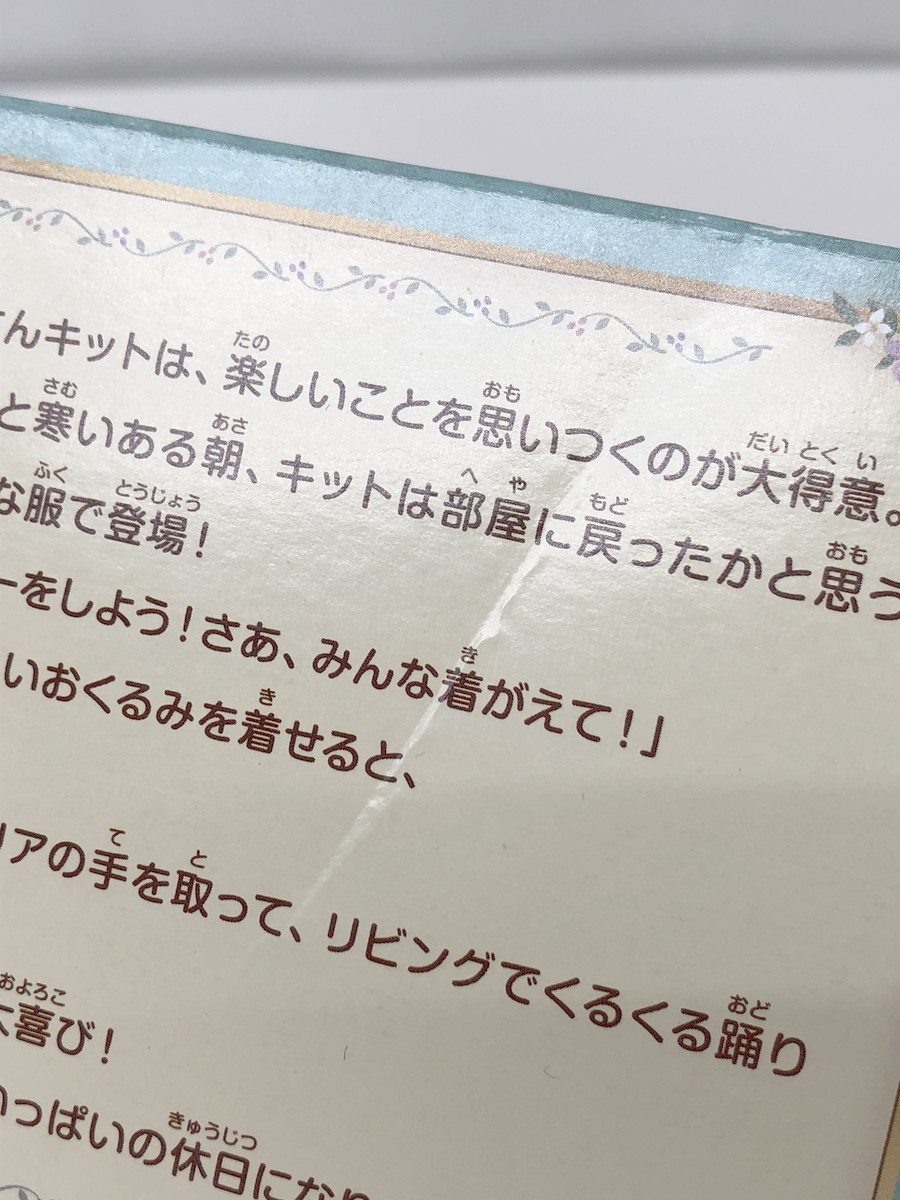 んキットは、楽しいことを思いつくのが大得意。
と寒いある朝、キットは部屋に戻ったかと思う
な服で登場！
ーをしよう！さあ、みんな着がえて！」
いおくるみを着せると、
リアの手を取って、リビングでくるくる踊り
大喜び！
いっぱいの休日になり